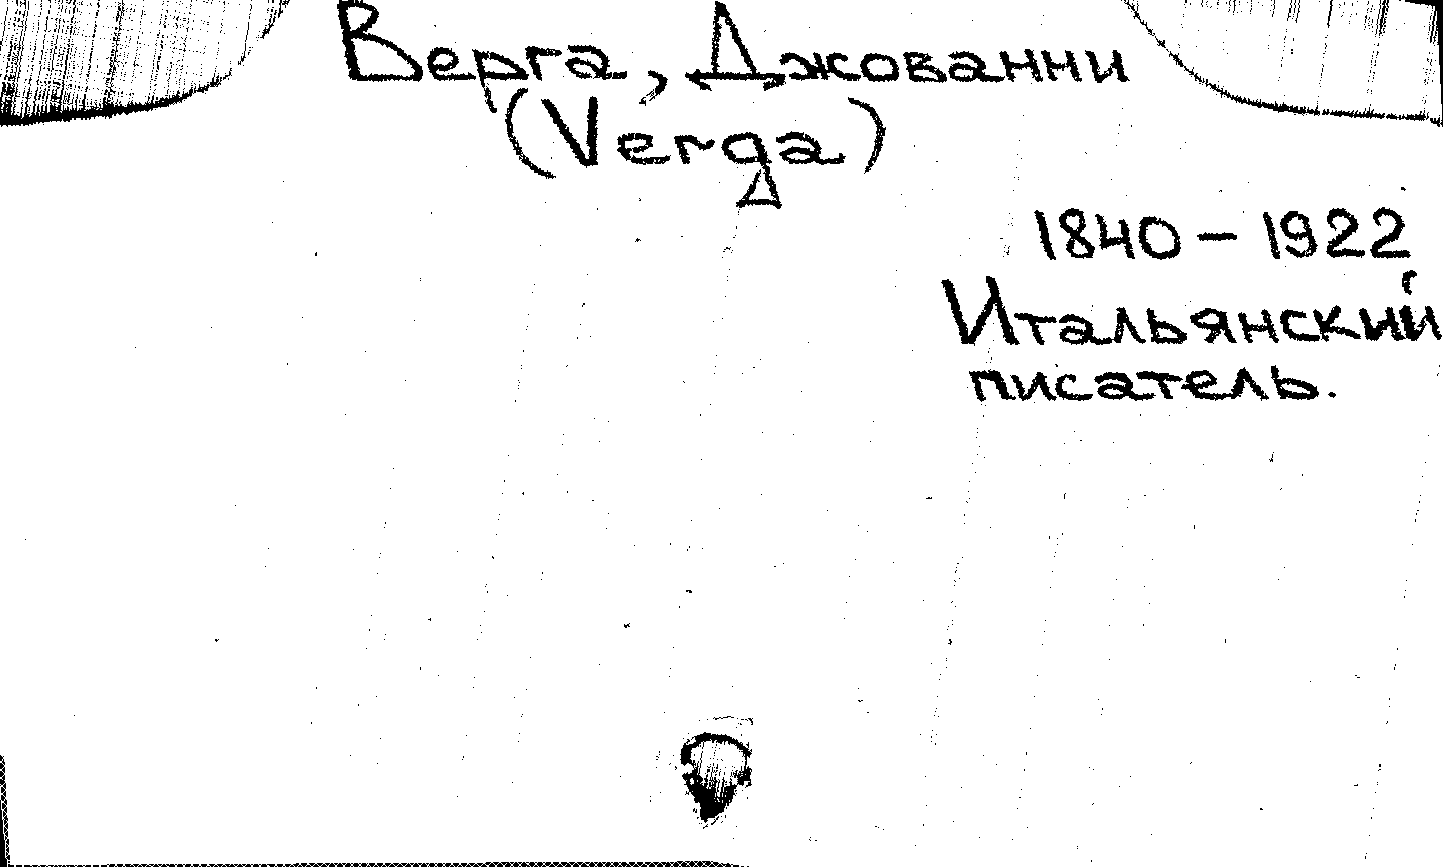 Верга, Джованни
(Verga)
1840 – 1922
Итальянский
писатель.